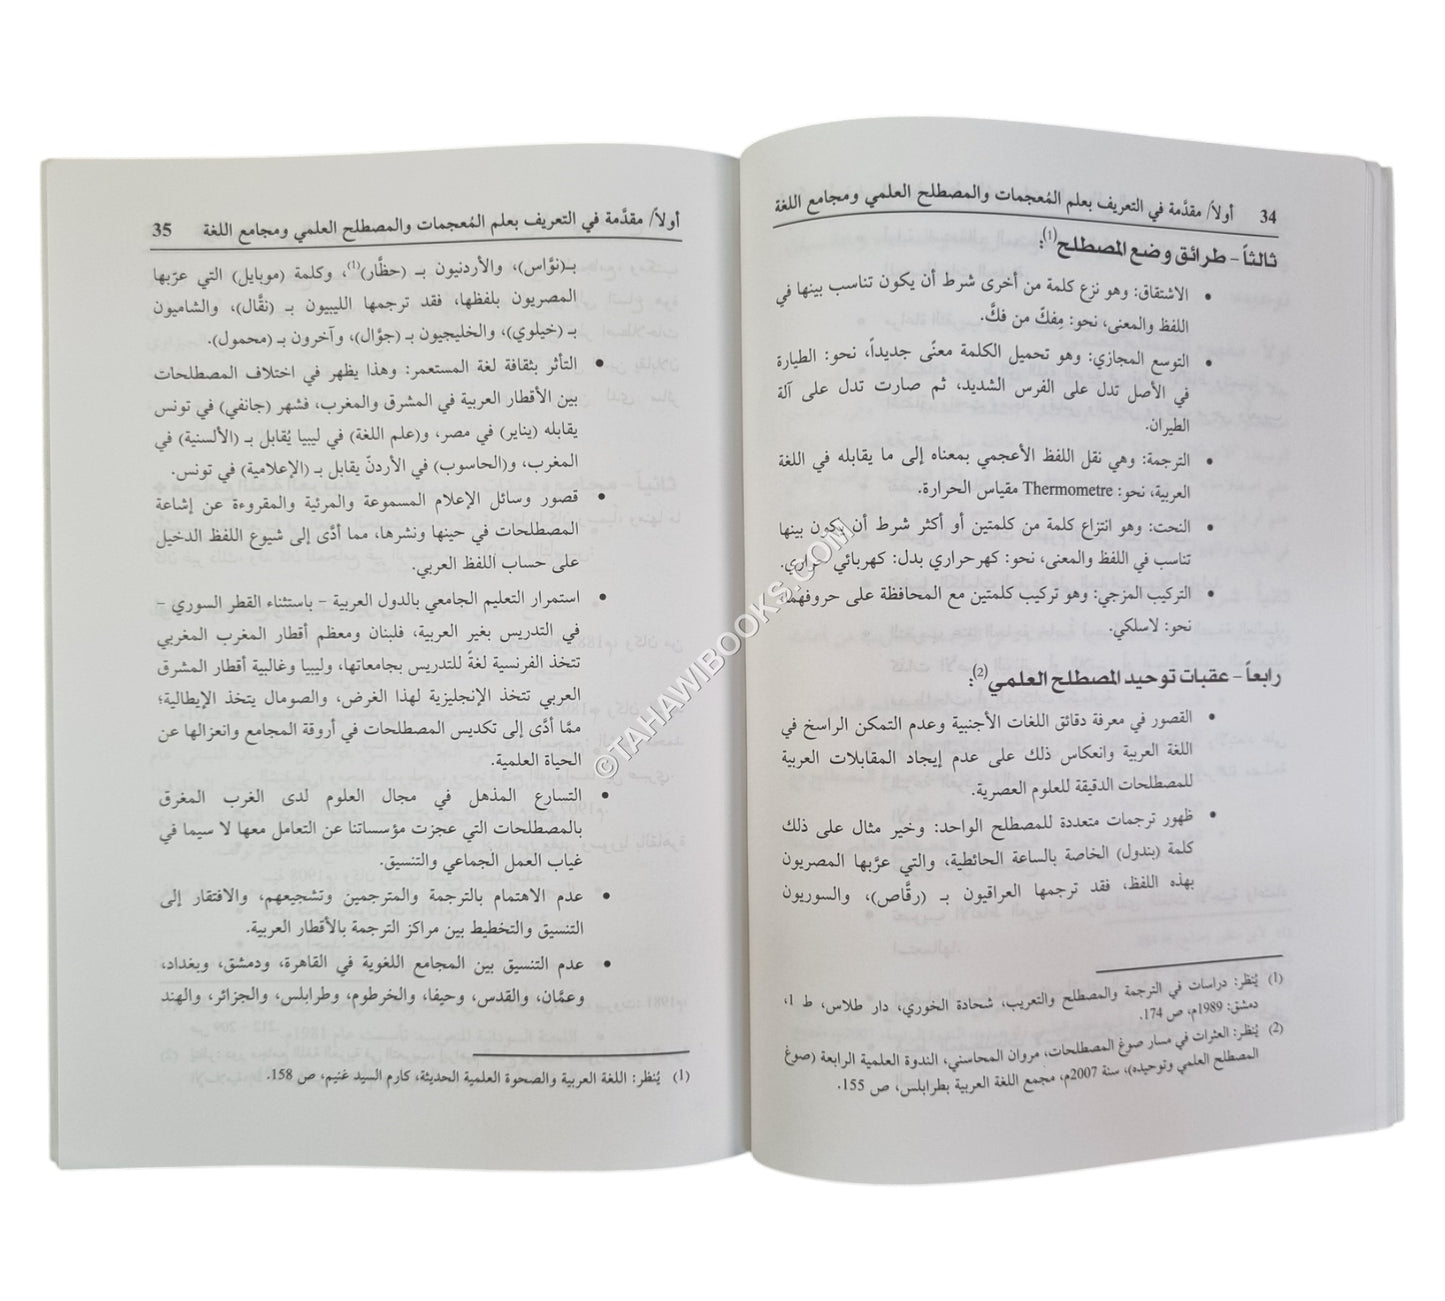 34 أولاً/ مقدَّمة في التعريف بعلم المُعجمات والمصطلح العلمي ومجامع اللغة
ثالثاً - طرائق وضع المصطلح(1):
• الاشتقاق: وهو نزع كلمة من أخرى شرط أن يكون تناسب بينها في
اللفظ والمعنى، نحو: مِفكّ من فكَّ.
• التوسع المجازي: وهو تحميل الكلمة معنًى جديداً، نحو: الطيارة
في الأصل تدل على الفرس الشديد، ثم صارت تدل على آلة
الطيران.
• الترجمة: وهي نقل اللفظ الأعجمي بمعناه إلى ما يقابله في اللغة
العربية، نحو: Thermometre مقياس الحرارة.
• النحت: وهو انتزاع كلمة من كلمتين أو أكثر شرط أن يكون بينها
تناسب في اللفظ والمعنى، نحو: كهرحراري بدل: كهربائي حراري.
• التركيب المزجي: وهو تركيب كلمتين مع المحافظة على حروفهما،
نحو: لاسلكي.
رابعاً - عقبات توحيد المصطلح العلمي(2):
• القصور في معرفة دقائق اللغات الأجنبية وعدم التمكن الراسخ في
اللغة العربية وانعكاس ذلك على عدم إيجاد المقابلات العربية
للمصطلحات الدقيقة للعلوم العصرية.
• ظهور ترجمات متعددة للمصطلح الواحد: وخير مثال على ذلك
كلمة (بندول) الخاصة بالساعة الحائطية، والتي عرَّبها المصريون
بهذه اللفظ، فقد ترجمها العراقيون بـ (رقَّاص)، والسوريون
(1) يُنظر: دراسات في الترجمة والمصطلح والتعريب، شحادة الخوري، دار طلاس، ط 1،
دمشق: 1989م، ص 174.
(2) يُنظر: العثرات في مسار صوغ المصطلحات، مروان المحاسني، الندوة العلمية الرابعة (صوغ
المصطلح العلمي وتوحيده)، سنة 2007م، مجمع اللغة العربية بطرابلس، ص 155.
أولاً/ مقدَّمة في التعريف بعلم المُعجمات والمصطلح العلمي ومجامع اللغة 35
بـ(نوَّاس)، والأردنيون بـ (حظَّار)(1)، وكلمة (موبايل) التي عرّبها
المصريون بلفظها، فقد ترجمها الليبيون بـ (نقَّال)، والشاميون
بـ (خيلوي)، والخليجيون بـ (جوَّال)، وآخرون بـ (محمول).
• التأثر بثقافة لغة المستعمر: وهذا يظهر في اختلاف المصطلحات
بين الأقطار العربية في المشرق والمغرب، فشهر (جانفي) في تونس
يقابله (يناير) في مصر، و(علم اللغة) في ليبيا يُقابل بـ (الألسنية) في
المغرب، و(الحاسوب) في الأردنّ يقابل بـ (الإعلامية) في تونس.
• قصور وسائل الإعلام المسموعة والمرئية والمقروءة عن إشاعة
المصطلحات في حينها ونشرها، مما أدَّى إلى شيوع اللفظ الدخيل
على حساب اللفظ العربي.
• استمرار التعليم الجامعي بالدول العربية - باستثناء القطر السوري -
في التدريس بغير العربية، فلبنان ومعظم أقطار المغرب المغربي
تتخذ الفرنسية لغةً للتدريس بجامعاتها، وليبيا وغالبية أقطار المشرق
العربي تتخذ الإنجليزية لهذا الغرض، والصومال يتخذ الإيطالية؛
ممَّا أدَّى إلى تكديس المصطلحات في أروقة المجامع وانعزالها عن
الحياة العلمية.
• التسارع المذهل في مجال العلوم لدى الغرب المغرق
بالمصطلحات التي عجزت مؤسساتنا عن التعامل معها لا سيما في
غياب العمل الجماعي والتنسيق.
• عدم الاهتمام بالترجمة والمترجمين وتشجيعهم، والافتقار إلى
التنسيق والتخطيط بين مراكز الترجمة بالأقطار العربية.
• عدم التنسيق بين المجامع اللغوية في القاهرة، ودمشق، وبغداد،
وعمَّان، والقدس، وحيفا، والخرطوم، وطرابلس، والجزائر، والهند
(1) يُنظر: اللغة العربية والصحوة العلمية الحديثة، كارم السيد غنيم، ص 158.
©TAHAWIBOOKS.COM